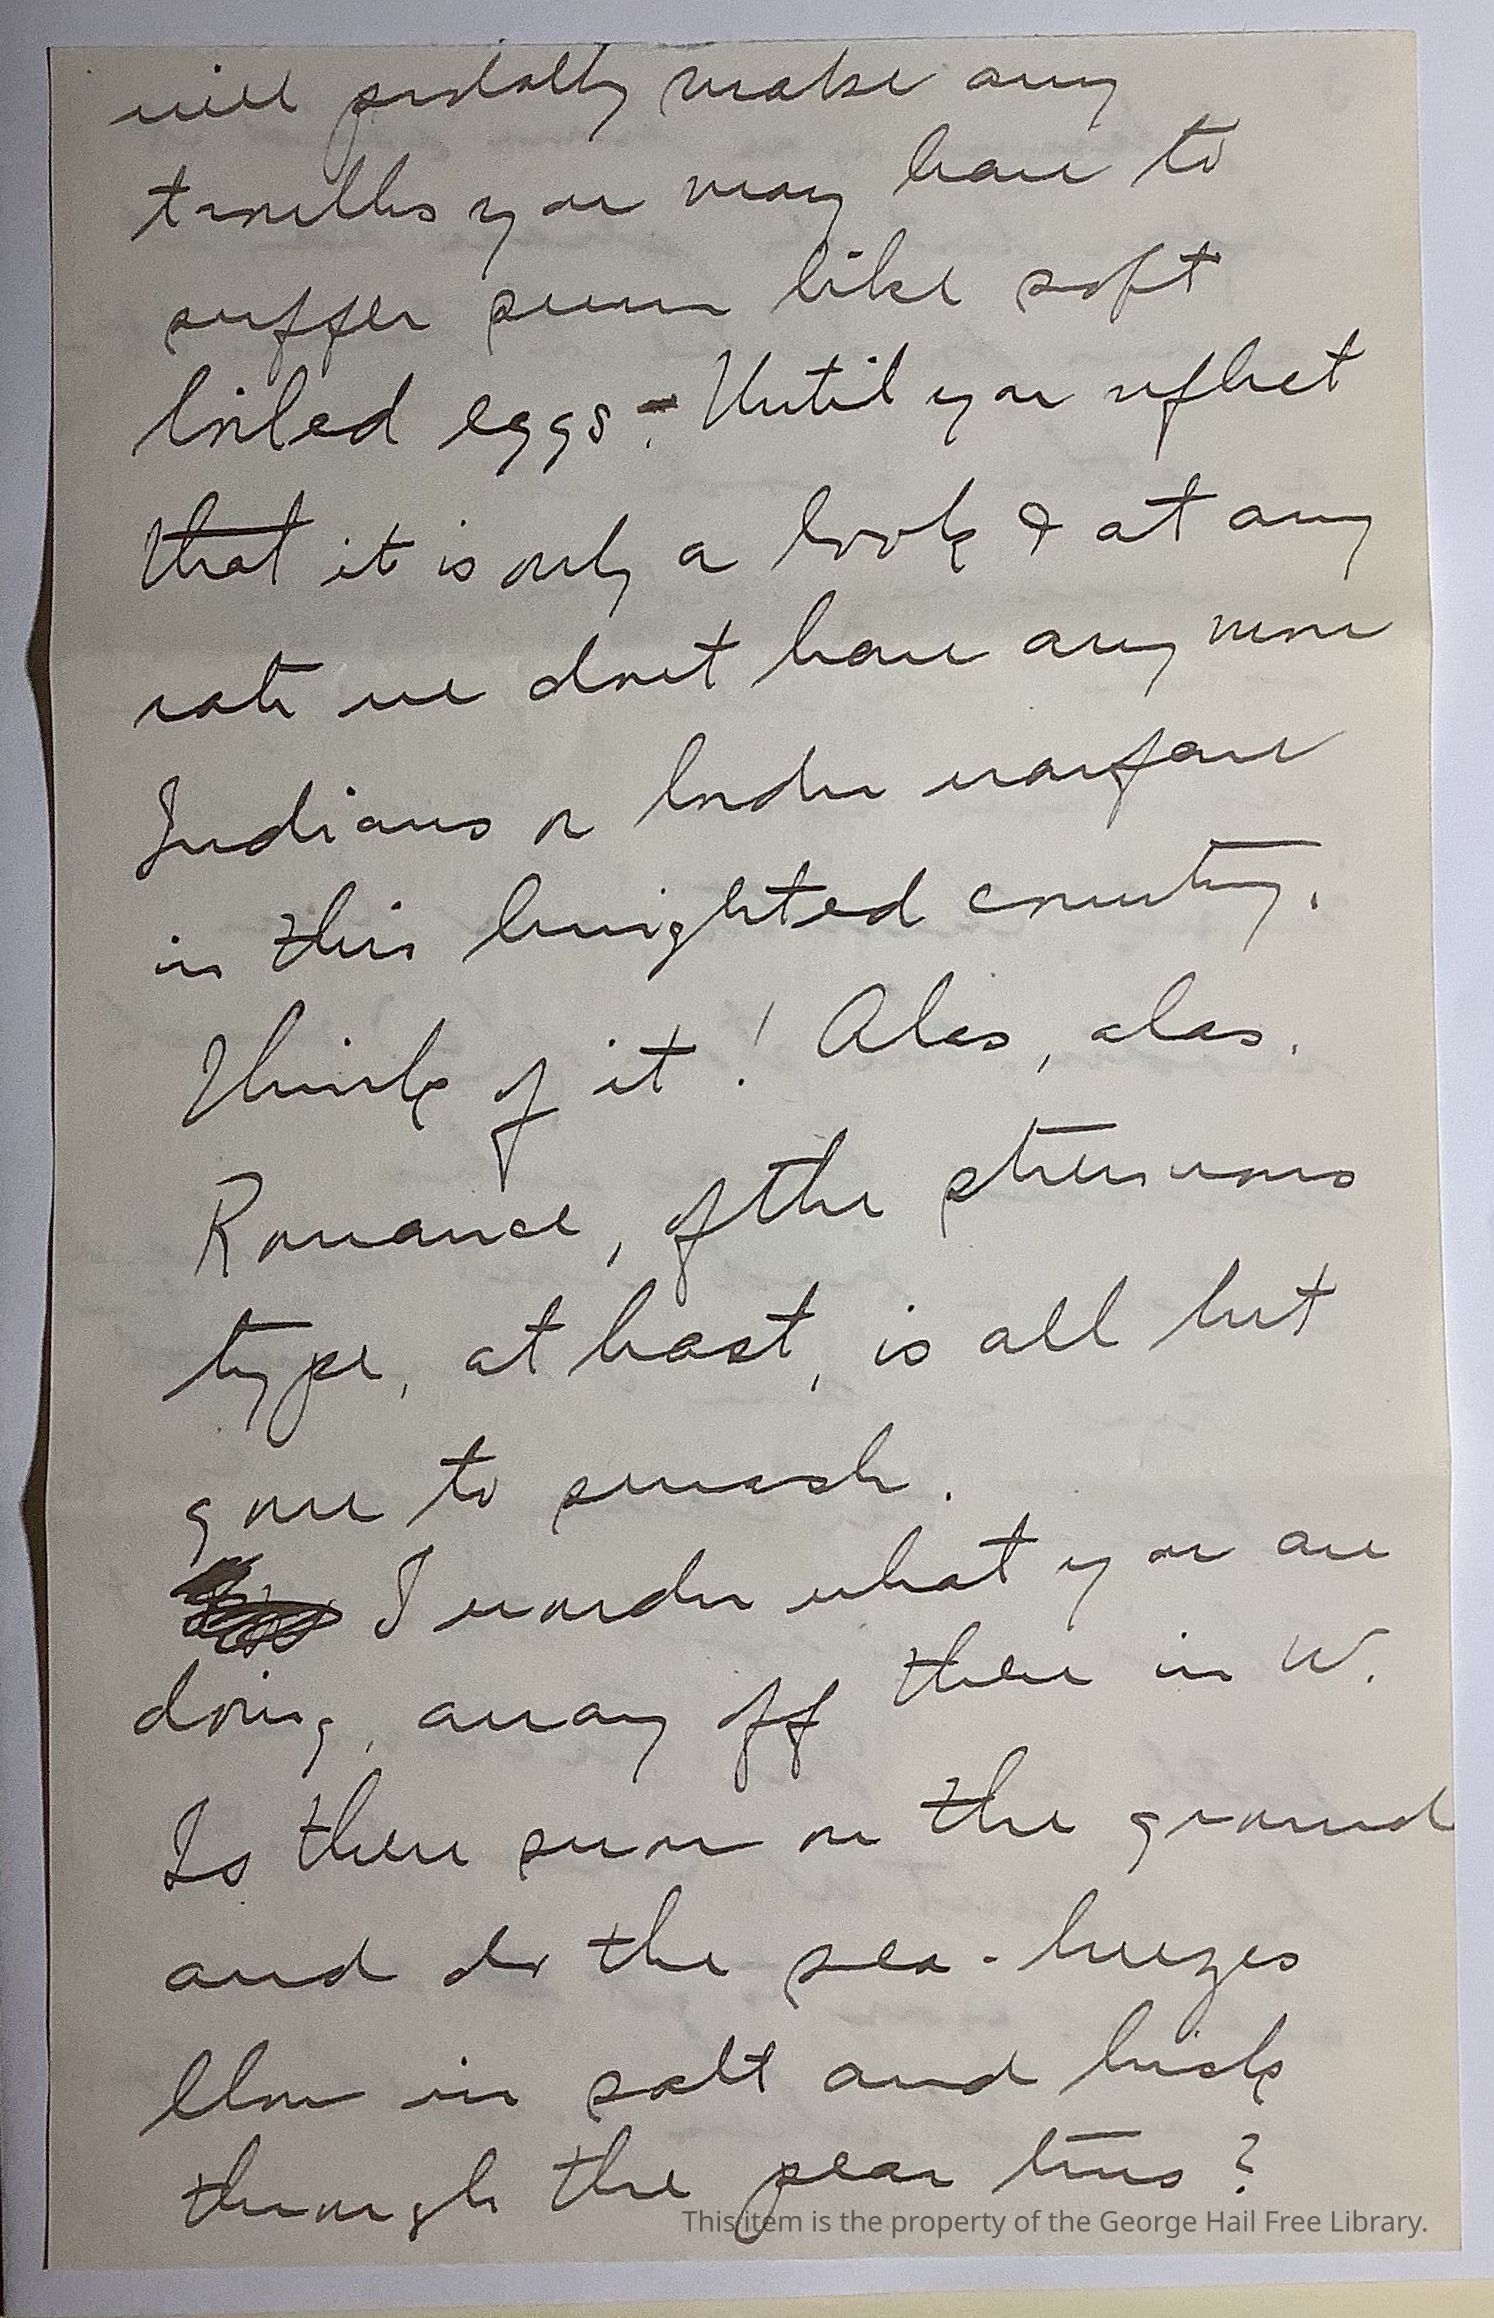 will probably make any
troubles you may have to
suffer seem like soft
boiled eggs - Until you reflect
that it is only a book & at any
rate we don't have any more
Indians or border warfare
in this benighted country.
Think of it! Alas, alas.
Romance, of the strenuous
type, at least, is all but
gone to smash.
I wonder what you are
doing, away off there in W.
Is there snow on the ground
and do the sea-breezes
blow in salt and brisk
through the pear trees?
This item is the property of the George Hail Free Library.